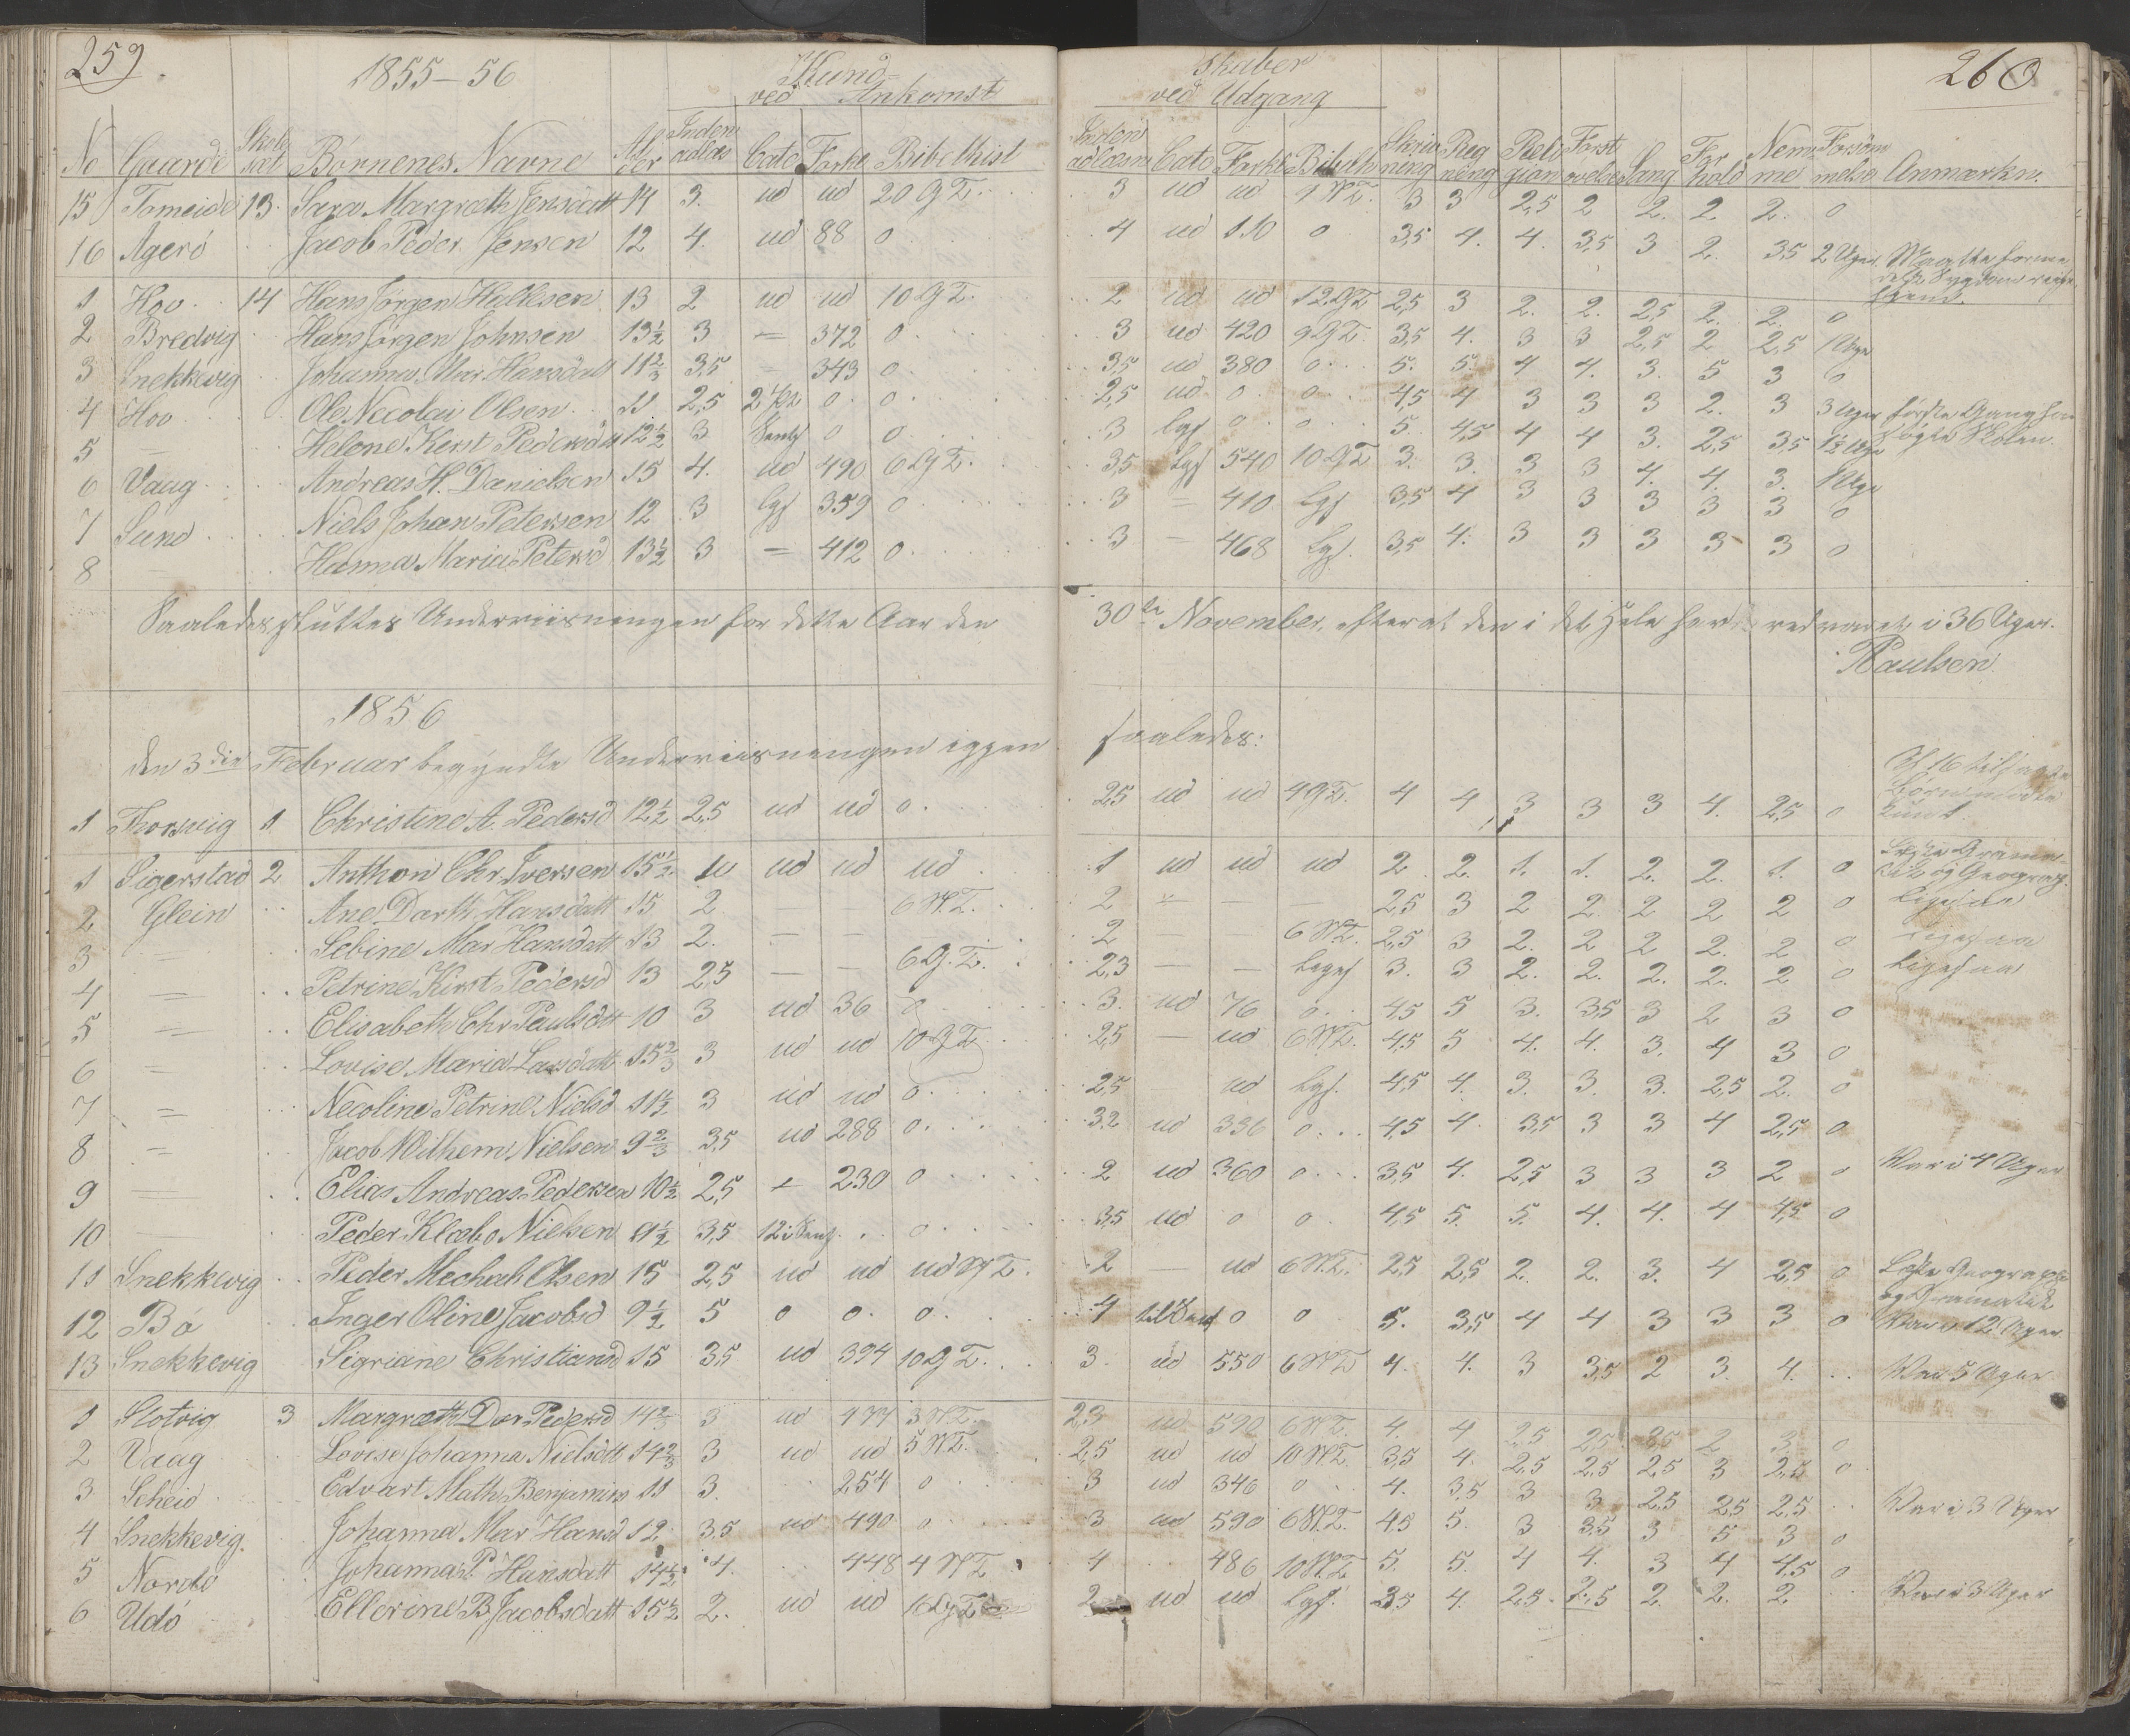 259. 1855–56 Kund- ved Ankomst
Skaber ved Udgang 260
No Gaarde Skole sæt Børnenes Navne Al der Inden adlæs Cate Forkl Bibelhist
Inden adlæsn Cate Forkl Bibelh Skriv ning Reg ning Reli gion Forst. Sang For hold Nem me Forsøm melse Anmærkn.
15 Tomeide 13. Sara Margreth Jensdatt 14 3. ud ud 20 G T. 3 ud ud 1 N T. 3 3 2,5 2 2. 2. 2. 0
16 Agerö Jacob Peder Jensen 12 4. ud 88 0 4 ud 110 0 3,5 4. 4. 3,5 3 2. 3,5 2 Uger Maatte formedelst Sygdom reise hjem.
1 Hov 14 Hans Jørgen Hallesen 13 2 ud ud 10 G T. 2 ud ud 12 G T 2,5 3 2. 2. 2,5 2. 2. 0
2 Bredvig Hans Jørgen Johnsen 13½ 3 = 372 0 3 ud 420 9 G T. 3,5 4. 3 3 2,5 2. 2,5 1 Uge
3 Snekkevig Johanna Mar Hansdatt 11⅔ 3,5 – 343 0 3,5 ud 380 0 5. 5. 4 4. 3. 5 3 0
4 Hov Ole Necolai Olsen 11 2,5 0 0 2,5 ud 0 0 4,5 4 3 3 3 2. 3 3 Uger første Gang han søgte Skolen.
5 — Helene Kerst Pedersdtt 12½ 3 0 0 3 0 0 5 4,5 4 4 3. 2,5 3,5 1½ Uge
6 Vaag Andreas H. Danielsen 15 4. ud 490 6 G T. 3,5 lgs 540 10 G T 3. 3. 3 3 4. 4. 3. 1 Uge
7 Sund Niels Johan Petersen 12 3 lgs 359 0 3 = 410 lgs 3,5 4 3 3 3 3 3 0
8 — Hanna Maria Petersd 13½ 3 = 412 0 3 – 468 lgs. 3,5 4. 3 3 3 3 3 0
Saaledes sluttes Underviisningen for dette Aar den 30te November, efterat den i det Hele har vedvaret i 36 Uger.
Paulsen
1856
den 3die Februar begyndte Underviisningen igjen saaledes:
1 Thorsvig 1 Christine A. Pedersd 12½ 2,5 ud ud 0. 2,5 ud ud 4 G T. 4 4 3 3 3 4. 2,5 0 Af 16 tilsagte Børn mødte kun 1.
1 Sigerstad 2 Anthon Chr Iversen 15½ ud ud ud 1 ud ud ud 2 2. 1. 1. 2. 2. 1. 0 Læste Grammatik og Geograf.
2 Glein Ane Dorth Hansdatt 15 2 — — 6 N T. 2 — — 2,5 3 2 2 2 2 2 0 ligesaa
3 — Sebine Mar Hansdatt 13 2. — — — 2 — — 6 N T. 2,5 3 2. 2 2 2. 2 0 ligesaa
4 = Petrine Kirst Pedersd 13 2,5 — — 6 G. T. 2,3 — — 3. 3 2. 2. 2. 2. 2 0 ligesaa
5 = Elisabeth Chr Paulsdtt 10 3 ud 36 0 3. ud 76 0 4,5 5 3. 3,5 3 2 3 0
6 = Lovise Maria Larsdatt 15⅔ 3 ud ud 10 G T 2,5 — ud 6 N T. 4,5 5 4. 4. 3. 4 3 0
7 = Necoline Petrine Nielsd 11½ 3 ud ud 0 2,5 ud lgs. 4,5 4. 3. 3. 3. 2,5 2. 0
8 = Jacob Wilhem Nielsen 9⅔ 3,5 ud 288 0 3,2 ud 336 0 4,5 4. 3,5 3 3 4 2,5 0
9 — Elias Andreas Pedersen 10½ 2,5 230 0 2 ud 360 0 3,5 4. 2,5 3 3 3 2 0 Var i 4 Uger
10 — Peder Klæbo Nielsen 9½ 3,5 0 3,5 ud 0 0 4,5 5. 5. 4. 4. 4 4,5 0
11 Snekkevig Peder Mechal Olsen 15 2,5 ud ud ud N T. 2 — ud 6 N T. 2,5 2,5 2. 2. 3. 4 2,5 0 Læste Geografi og Gramatik
12 Bö Inger Oline Jacobsd 9½ 5 0 0 0 4 0 0 5. 3,5 4 4 3 3 3 0 Var i 12 Uger
13 Snekkevig Sigriane Christiansd 15 3,5 ud 394 10 G T. 3. ud 550 6 N T. 4. 4. 3 3,5 2 3. 4. Var 5 Uger
1 Slotvig 3 Margreth Dor Pedersd 14⅔ 3 ud 477 3 N T. 2,3 ud 590 6 N T. 4. 4 2,5 2,5 2 3 0
2 Vaag Lovise Johanna Nielsdtt 14⅔ 3 ud ud 5 N T. 2,5 ud ud 10 N T. 3,5 4. 2,5 2,5 2,5 3 2,5 0
3 Scheid Edvart Math Benjamins 11 3. 254 0 3 ud 346 0 4. 3,5 3 3 2,5 2,5 2,5 Var i 3 Uger
4 Snekkevig. Johanna Mar Hansd 12. 3,5 ud 490 0 3 ud 590 6 N T. 4,5 5. 3 3,5 3 5 3 0
5 Nordö Johanna P. Hansdatt 14½ 4. 448 4 N T 4 486 10 N T 5. 5. 4 4. 3 4 4,5 0
6 Udö Ellerine B Jacobsdatt 15½ 2. ud ud 10 G T 2 ud ud lgs. 3,5 4. 2,5 2,5 2. 2. 2 Var i 3 Uger